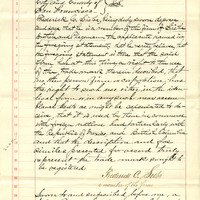 City and County of
San Francisco } ss
Frederick C. Siebe, being duly sworn deposes
and says that he is a member of the firm of Siebe
Brothers & Plagemann the applicants named in
the foregoing statement, that he verily believes the
foregoing statement is true; that the said
firm has at this time a right to the use
of the trade mark therein described; that
no other person, firm or corporation has
the right to such use either in the iden-
tical form or in any such near resem-
blance thereto as might be calculated to de-
ceive; that it is used by them in commerce
with foreign nations and particularly with
the Republic of Mexico, and British Columbia
and that the description and fac-
similes, presented for record truly
represent the trade mark sought to
be registered.
Frederick C. Siebe
a member of the firm
Sworn to and subscribed before me, a